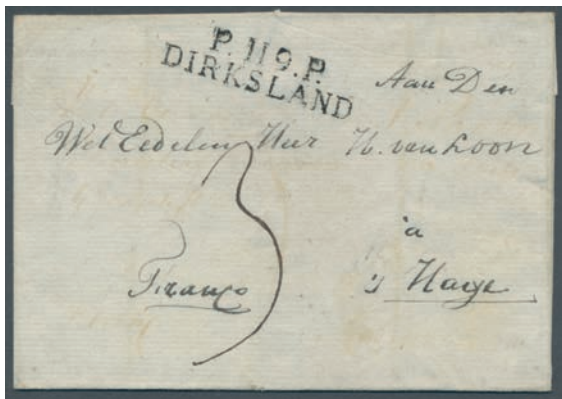 P.119.P.
DIRKSLAND
Aan Den
Wel Eedelen Heer H. van Loon
3
a
Franco
's Hage